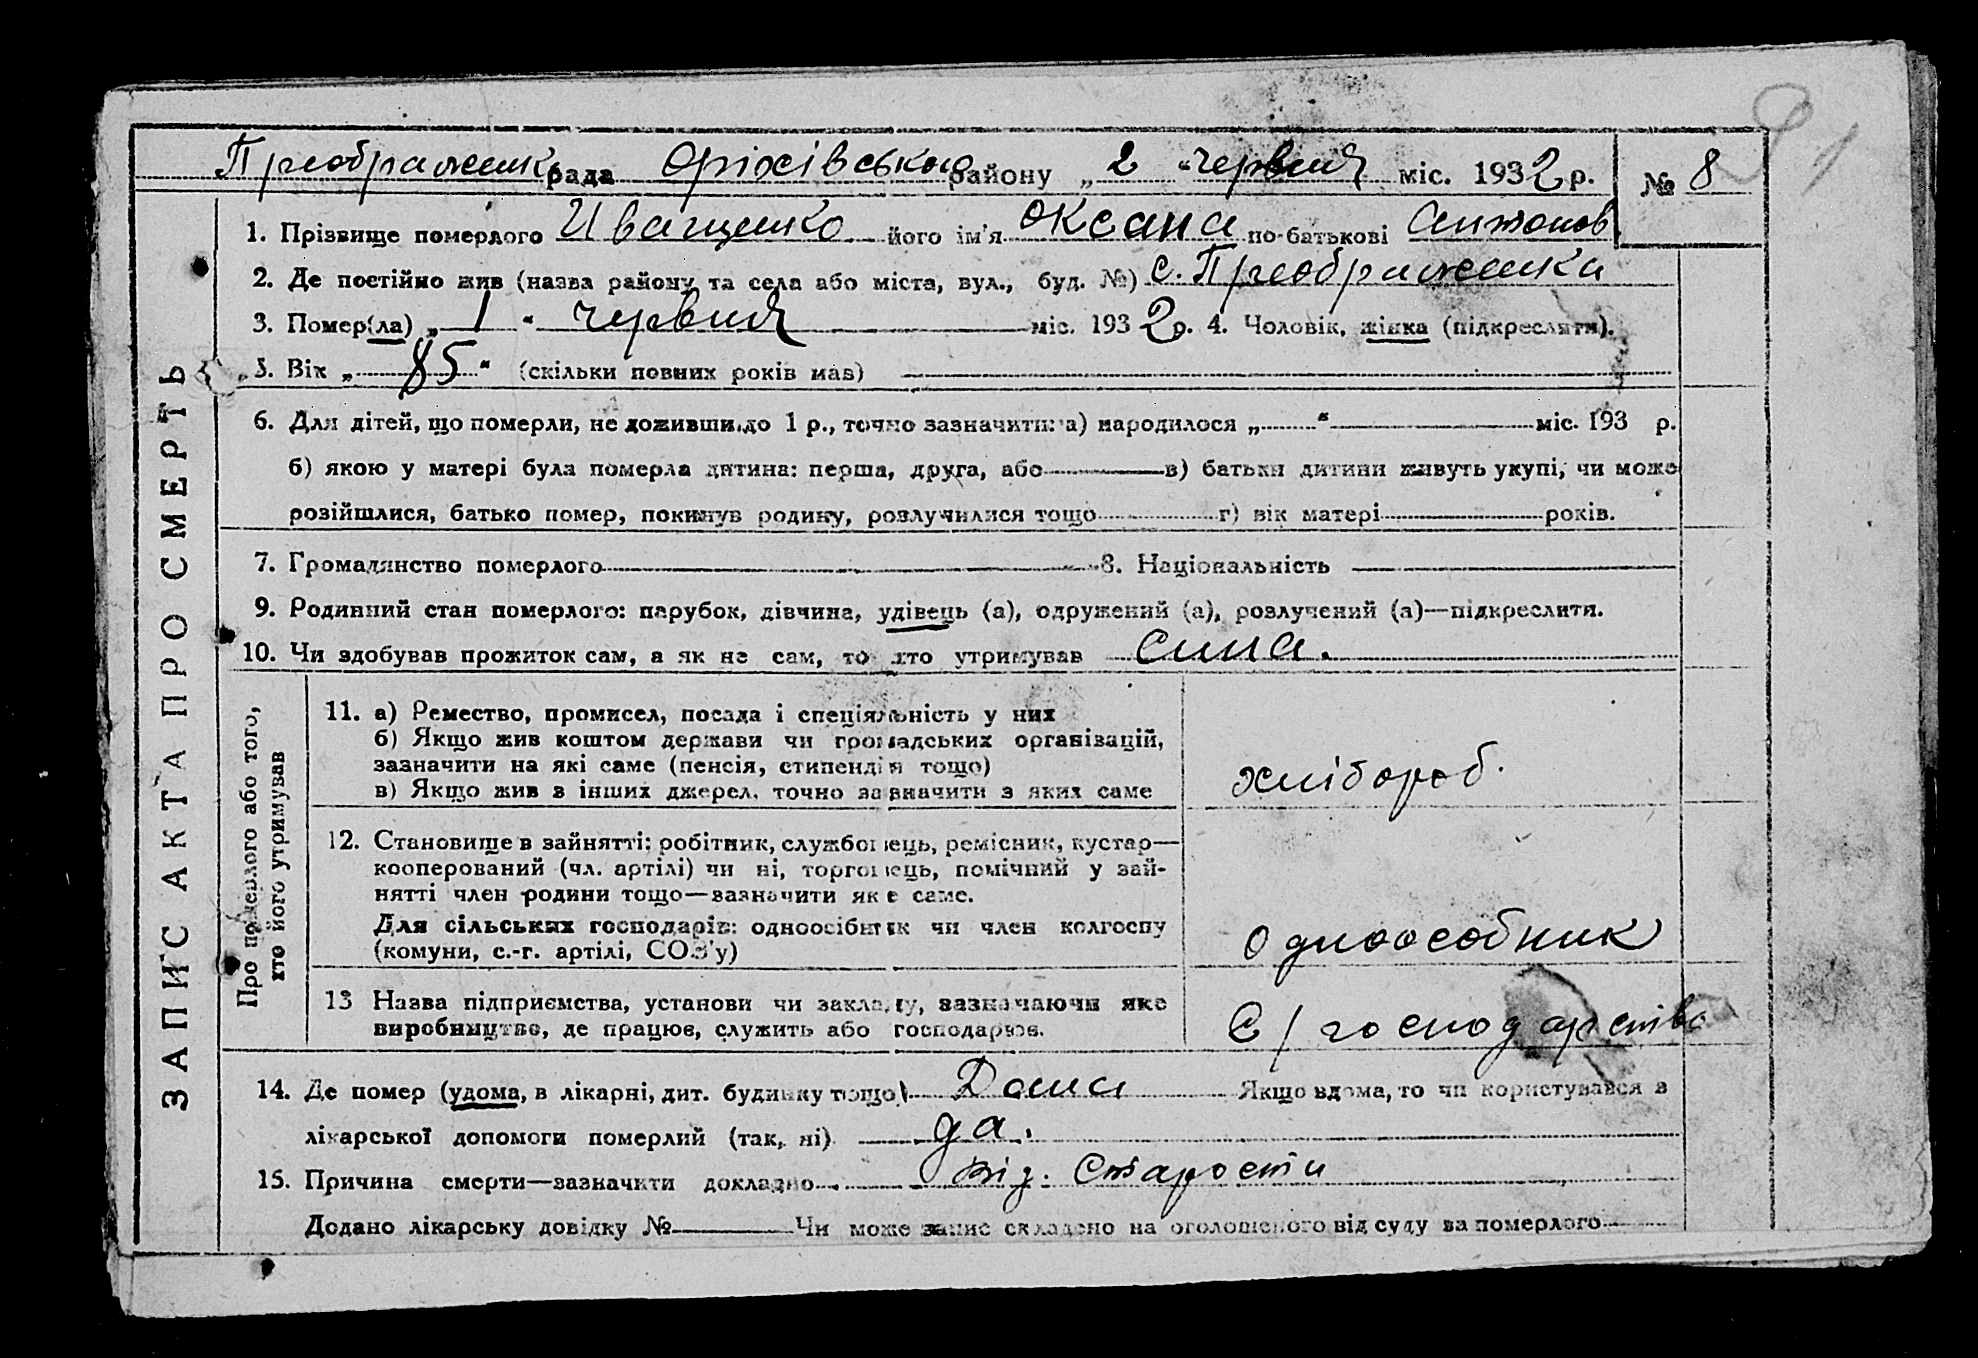 Преображенк рада Оріхівського району „ 2 “ червня міс. 1932 р. № 8
1. Прізвище померлого Иващенко його ім'я Оксана по-батькові Антонов.
2. Де постійно жив (назва району та села або міста, вул., буд. №) с. Преображенка
3. Помер(ла) „ 1 “ червня міс. 1932 р. 4. Чоловік, жінка (підкреслити).
5. Вік „ 85 “ (скільки повних років мав)
6. Для дітей, що померли, не доживши до 1 р., точно зазначити: а) народилося „ “ міс. 193 р.
б) якою у матері була померла дитина: перша, друга, або в) батьки дитини живуть укупі, чи може
розійшлися, батько помер, покинув родину, розлучилися тощо г) вік матері років.
7. Громадянство померлого 8. Національність
9. Родинний стан померлого: парубок, дівчина, удівець (а), одружений (а), розлучений (а)—підкреслити.
10. Чи здобував прожиток сам, а як не сам, то хто утримував сима.
ЗАПИС АКТА ПРО СМЕРТЬ
Про померлого або того,
хто його утримував
11. а) Ремество, промисел, посада і спеціяльність у них
б) Якщо жив коштом держави чи громадських організацій,
зазначити на які саме (пенсія, стипендія тощо)
в) Якщо жив з інших джерел, точно зазначити з яких саме
хлібороб.
12. Становище в зайнятті: робітник, службовець, ремісник, кустар—
кооперований (чл. артілі) чи ні, торговець, помічний у зай-
нятті член родини тощо—зазначити яке саме.
Для сільських господарів: одноосібник чи член колгоспу
(комуни, с.-г. артілі, СОЗ'у)
одноособник
13 Назва підприємства, установи чи закладу, зазначаючи яке
виробництво, де працює, служить або господарює.
С/господарство
14. Де помер (удома, в лікарні, дит. будинку тощо) Дома Якщо вдома, то чи користувався з
лікарської допомоги померлий (так, ні) да.
15. Причина смерти—зазначити докладно від. Старости
Додано лікарську довідку № Чи може запис складено на оголошеного від суду за померлого